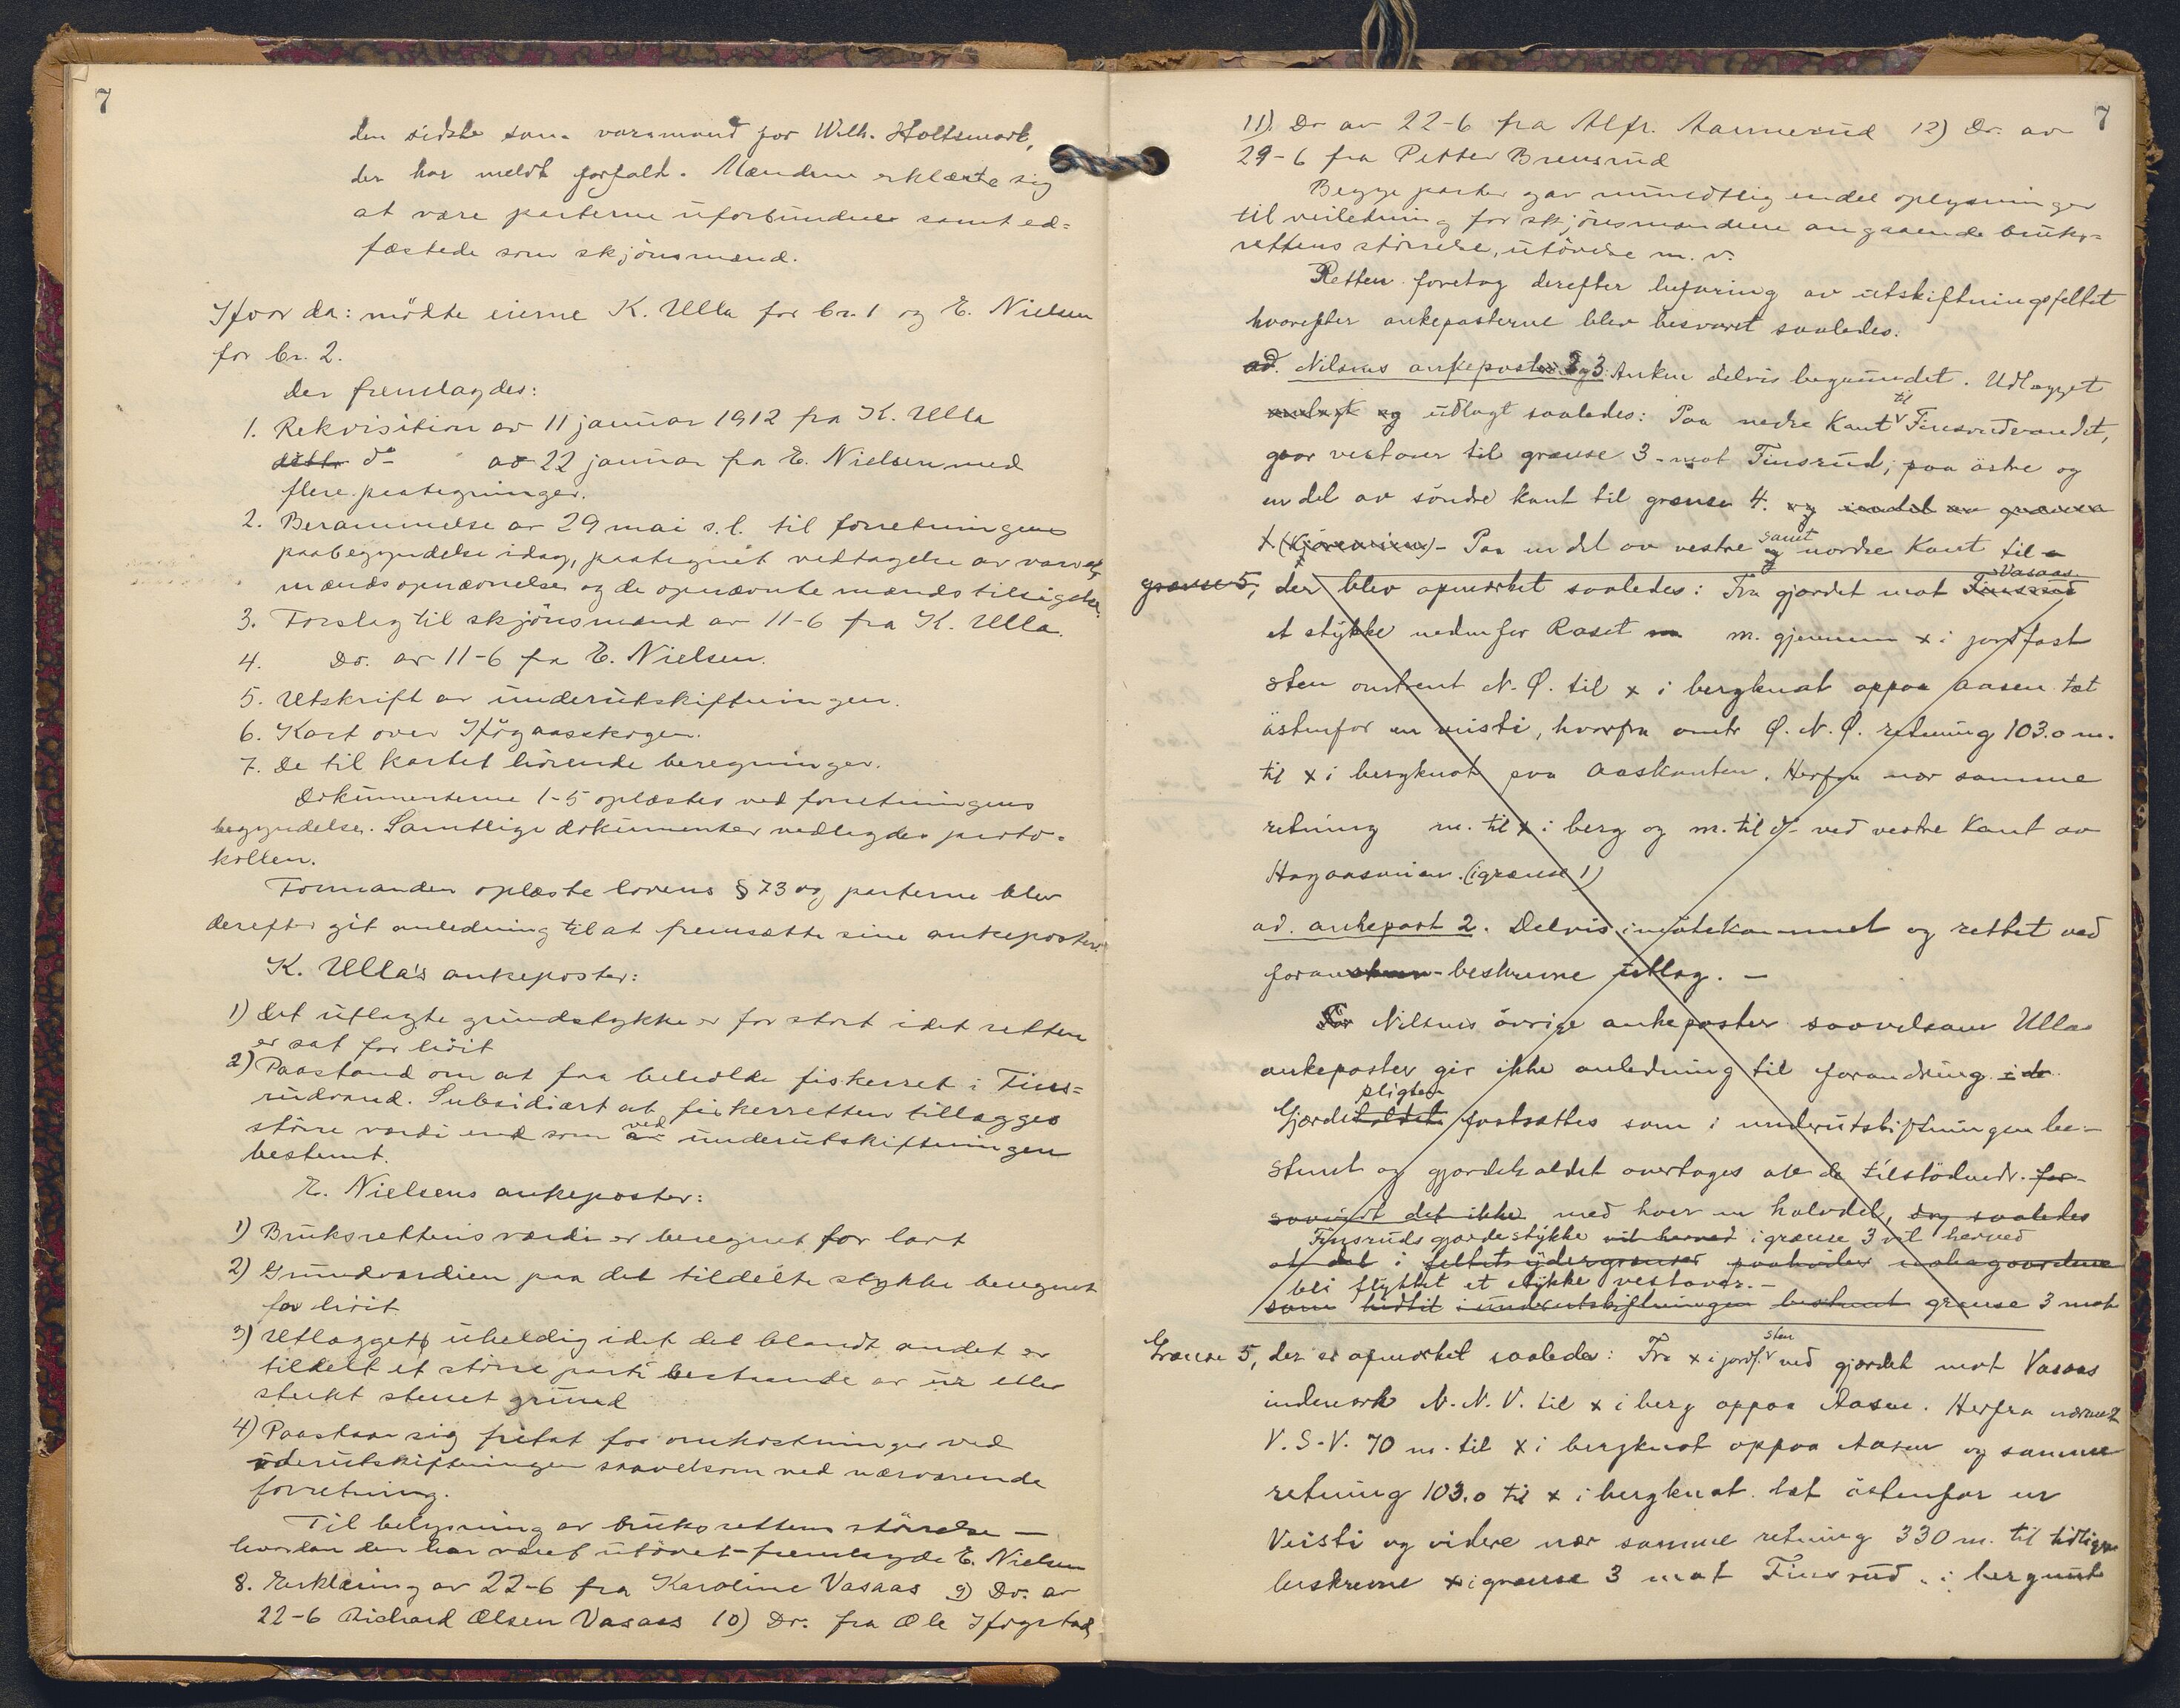 7
den sidste som varamand for Wilh. Holtsmark,
der har meldt forfald. Mændene erklærte sig
at være parterne uforbundne samt ed=
fæstede som skjönsmænd.
Hvor da: mödte eierne K. Ulla for br. 1 og E. Nielsen
for br. 2.
Der fremlagdes:
1. Rekvisition av 11 januar 1912 fra K. Ulla
ditto do av 22 januar fra E. Nielsen med
flere paategninger.
2. Berammelse av 29 mai s.l. til forretningens
paabegyndelse idag, paategnet vedtagelse av
mænds opnævnelse og de opnævnte mænds tilsigelse.
3. Forslag til skjönsmænd av 11-6 fra K. Ulla.
4. Do. av 11-6 fra E. Nielsen.
5. Utskrift av underutskiftningen.
6. Kart over Högaasskogen.
7. De til kartet hörende beregninger.
Dokumenterne 1-5 oplæstes ved forretningens
begyndelse. Samtlige dokumenter vedlegdes proto-
kollen.
Formanden oplæste lovens § 73 og parterne blev
derefter git anledning til at fremsætte sine ankeposter.
K. Ulla's ankeposter:
1) Det utlagte grundstykke er for stort idet retten
er sat for höit
2) Paastand om at faa beholde fiskerret i Fins=
rudvand. Subsidiært at fiskerretten tillægges
större værdi end som av ved underutskiftningen
bestemt.
E. Nielsens ankeposter:
1) Bruksrettens værdi er beregnet for lavt
2) Grundværdien paa det tildelte stykke beregnet
for höit
3) Utlægget uheldig idet det blandt andet er
tildelt et större parti bestaaende av ur eller
sterkt stenet grund
4) Paastaar sig fritat for omkostninger ved
underutskiftningen saavelsom ved nærværende
forretning.
Til belysning av bruksrettens störrelse —
hvordan den har været utövet - fremlagde E. Nielsen
8. Erklæring av 22-6 fra Karoline Vasaas 9) Do. av
22-6 Richard Olsen Vasaas 10) Do. fra Ole Högstad,
7
11) Do av 22-6 fra Alfr. Aamerud 12) Do. av
29-6 fra Petter Brensrud
Begge parter gav mundtlig endel oplysninger
til veiledning for skjönsmændene angaaende bruks-
rettens störrelse, utövelse m. v.
Retten foretog derefter befaring av utskiftningsfeltet
hvorefter ankeposterne blev besvaret saaledes.
ad. Nilsens ankeposter 2 og 3 Anken delvis begrundet. Utlægget
og utlagt saaledes: Paa nedre kant til Finsrudvandet,
gaar vestover til grænse 3 mot Finsrud, paa östre og
en del av söndre kant til grænse 4. og endel av grænse
Paa en del av vestre og samt nordre kant til
grænse 5, der blev opmerket saaledes: Fra gjærdet mot Finsrud Vasaas
et stykke nedenfor Raset m. gjennem x i jordfast
sten omtrent N. Ø. til x i bergknat oppaa aasen tæt
östenfor en veisti, hvorfra omtr Ø. N. Ø. retning 103.0 m.
til x i bergknat paa aaskanten. Herfra nær samme
retning m. til x i berg og m. til do ved vestre kant av
Hagaasmien. (i grænse 1)
ad. ankepost 2. Delvis imötekommet og rettet ved
foran beskrevne utlæg. —
Nilsens övrige ankeposter saavelsom Ullas
ankeposter gir ikke anledning til forandring i de
pligten
Gjærdeholdet fastsættes som i underutskiftningen be-
stemt og gjærdeholdet overtages av de tilstödende. for-
saavidt det ikke med hver en halvdel, dog saaledes
Finsruds gjærdestykke vil herved i grænse 3 vil herved
at det i feltets ydergrænser paahviler nabogaardene
bli flyttet et stykke vestover. —
som hidtil i underutskiftningen bestemt grænse 3 mot
Grænse 5, der er opmerket saaledes: Fra x i jordf. sten ved gjærdet mot Vasaas
indmark N. N. V. til x i berg oppaa Aasen. Herfra nærmest
V. S. V. 70 m. til x i bergknat oppaa Aasen og samme
retning 103.0 til x i bergknat tæt östenfor en
Veisti og videre nær samme retning 330 m. til tidligere
beskrevne x i grænse 3 mot Finsrud. i